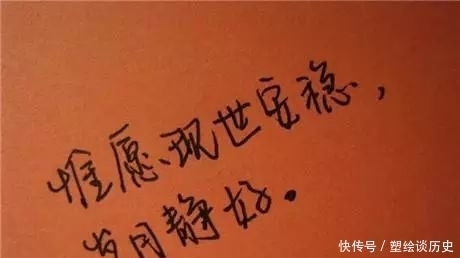 惟愿现世安稳，
岁月静好.
快传号／塑绘谈历史